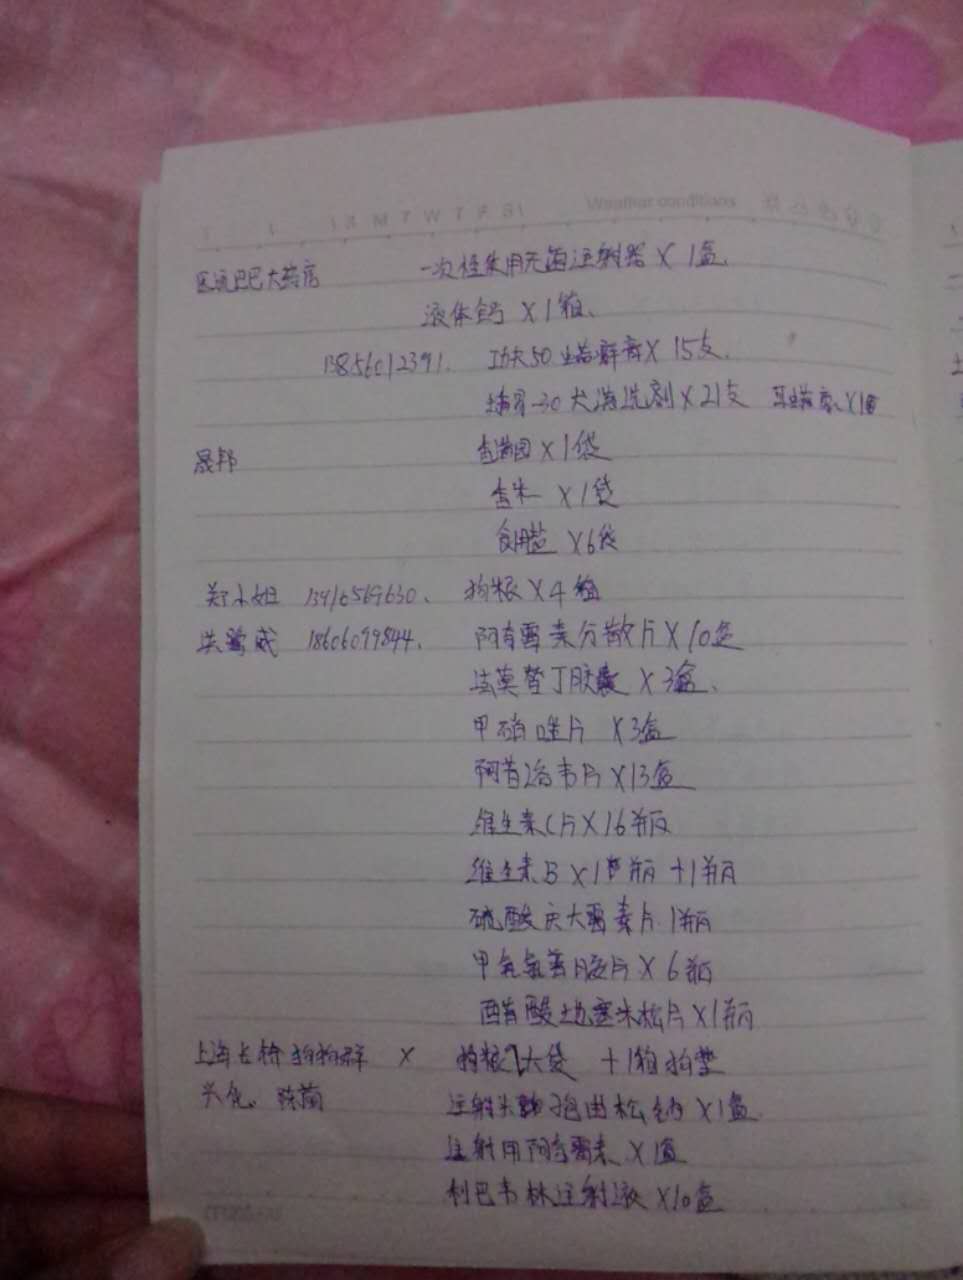 S M T W T F S Weather conditions
医流巴巴大药店 一次性使用无菌注射器 X 1盒.
液体钙 X 1箱、
13856012391. 功夫50 X 15支.
30 犬 洗剂 X 21支 耳 X 1
晟邦 X 1袋
香米 X 1袋
食用盐 X 6袋
郑小姐 13916569630、 狗粮 X 4箱
洪 威 18606099844. 阿奇霉素分散片 X 10盒
法莫替丁胶囊 X 3盒、
甲硝唑片 X 3盒
阿昔洛韦片 X 13盒
维生素C片 X 16瓶
维生素B X 1瓶 +1瓶
硫酸庆大霉素片.1瓶
甲氧氯普胺片 X 6瓶
醋酸地塞米松片 X 1瓶
上海长桥狗狗群 X 狗粮1大袋 +1箱狗垫
头孢曲松钠 X 1盒.
注射用阿奇霉素 X 1盒
利巴韦林注射液 X 10盒